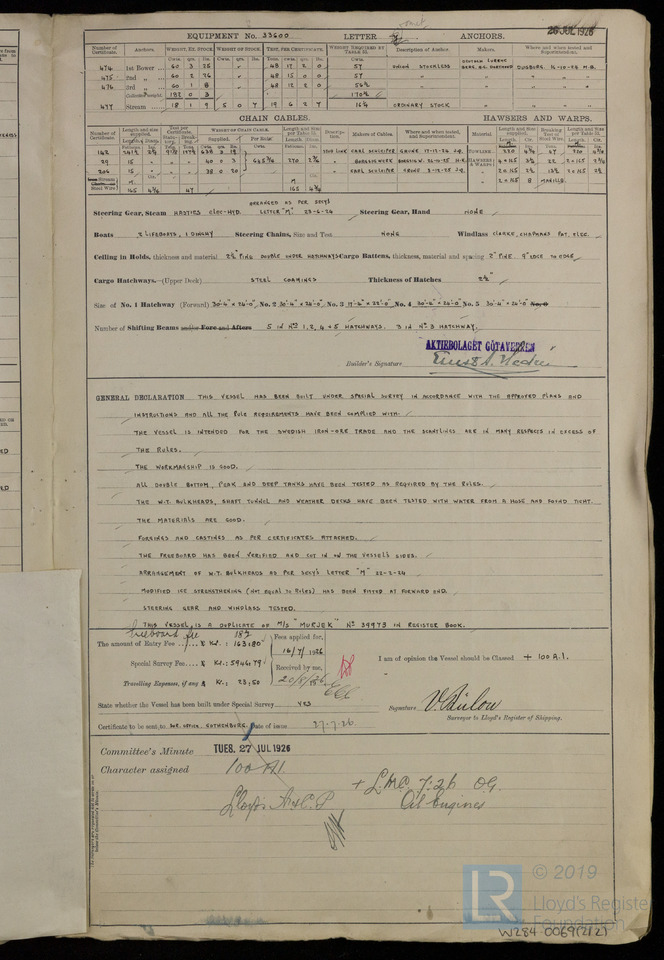 26 JUL 1926
EQUIPMENT No. 33600 LETTER ANCHORS.
Number of Certificate. Anchors. WEIGHT, EX. STOCK. WEIGHT OF STOCK. TEST, PER CERTIFICATE. WEIGHT REQUIRED BY TABLE 31. Description of Anchor. Makers. Where and when tested and Superintendent.
474 1st Bower 60 3 25 48 17 2 0 57 STOCKLESS DUISBURG 14-10-24 M.B.
475 2nd " 60 2 26 " 48 15 0 0 57 " " "
476 3rd " 60 1 8 " 48 12 2 0 56½ " " "
Collective weight 182 0 3 170½
477 Stream 18 1 9 5 0 7 19 6 2 7 16¼ ORDINARY STOCK " " "
CHAIN CABLES. HAWSERS AND WARPS.
Number of Certificate. Length and size supplied. Test per Certificate. WEIGHT OF CHAIN CABLE. Length and Size per Table 31. Description. Makers of Cables. Where and when tested, and Superintendent. Material Length and size supplied. Breaking Test of Steel Wire. Length and Size per Table 31.
Supplied. Per Rule.
142 638 3 19 STUD LINK CARL SCHLIEPER GRUNE 17-12-24 J.Q. TOWLINE 120 4¾ 47
29 15 " " " 40 0 3 645¾ 270 2⅜ " HAWSERS & WARPS 4 × 145 3½ 22
206 15 " " " 38 0 20 " CARL SCHLIEPER GRUNE 3-12-25 J.Q. 2 × 145 2½ 13½
Stream Steel Wire 165 4¾ 47 165 4¾ 2 × 145 8 MANILLA
ARRANGED AS PER SECY'S
Steering Gear, Steam HASTIES ELEC-HYD. LETTER "M" 23-6-24 Steering Gear, Hand NONE
Boats 2 LIFEBOATS, 1 DINGHY Steering Chains, Size and Test NONE Windlass CLARKE, CHAPMANS PAT. ELEC.
Ceiling in Holds, thickness and material 2½" PINE DOUBLE UNDER HATCHWAYS Cargo Battens, thickness, material and spacing 2" PINE 9" EDGE TO EDGE
Cargo Hatchways.—(Upper Deck) STEEL COAMINGS Thickness of Hatches 2½"
Size of No. 1 Hatchway (Forward) 30'-4" × 24'-0" No. 2 30'-4" × 24'-0" No. 3 17'-4" × 22'-0" No. 4 30'-4" × 24'-0" No. 5 30'-4" × 24'-0" No. 6
Number of Shifting Beams and/or Fore and Afters 5 IN Nos 1, 2, 4 + 5 HATCHWAYS. 3 IN No 3 HATCHWAY.
AKTIEBOLAGET GÖTAVERKEN
Builder's Signature
GENERAL DECLARATION THIS VESSEL HAS BEEN BUILT UNDER SPECIAL SURVEY IN ACCORDANCE WITH THE APPROVED PLANS AND
INSTRUCTIONS AND ALL THE RULE REQUIREMENTS HAVE BEEN COMPLIED WITH.
THE VESSEL IS INTENDED FOR THE SWEDISH IRON-ORE TRADE AND THE SCANTLINGS ARE IN MANY RESPECTS IN EXCESS OF
THE RULES.
THE WORKMANSHIP IS GOOD.
ALL DOUBLE BOTTOM, PEAK AND DEEP TANKS HAVE BEEN TESTED AS REQUIRED BY THE RULES.
THE W.T. BULKHEADS, SHAFT TUNNEL AND WEATHER DECKS HAVE BEEN TESTED WITH WATER FROM A HOSE AND FOUND TIGHT.
THE MATERIALS ARE GOOD.
FORGINGS AND CASTINGS AS PER CERTIFICATES ATTACHED.
THE FREEBOARD HAS BEEN VERIFIED AND CUT IN ON THE VESSEL'S SIDES.
ARRANGEMENT OF W.T. BULKHEADS AS PER SECY'S LETTER "M" 22-2-24
MODIFIED ICE STRENGTHENING (NOT EQUAL TO RULES) HAS BEEN FITTED AT FORWARD END.
STEERING GEAR AND WINDLASS TESTED.
THIS VESSEL IS A DUPLICATE OF M/S "MURJEK" No 39973 IN REGISTER BOOK.
Freeboard fee 182
The amount of Entry Fee Kr. : 163:80 Fees applied for, 16/7/1926
Special Survey Fee Kr. : 5946:79 Received by me,
Travelling Expenses, if any Kr. : 23:50 20/8/26
I am of opinion the Vessel should be Classed + 100 A.1.
State whether the Vessel has been built under Special Survey YES
Signature V. Bülow
Surveyor to Lloyd's Register of Shipping.
Certificate to be sent to SUR. OFFICE, GOTHENBURG. Date of issue 27-7-26
Committee's Minute TUES. 27 JUL 1926
Character assigned 100 A1.
+ L.M.C. 7:26 O.G.
Lloyds A & C. P Oil Engines
© 2019
LR
Lloyd's Register
Foundation
W284 0069(2/2)